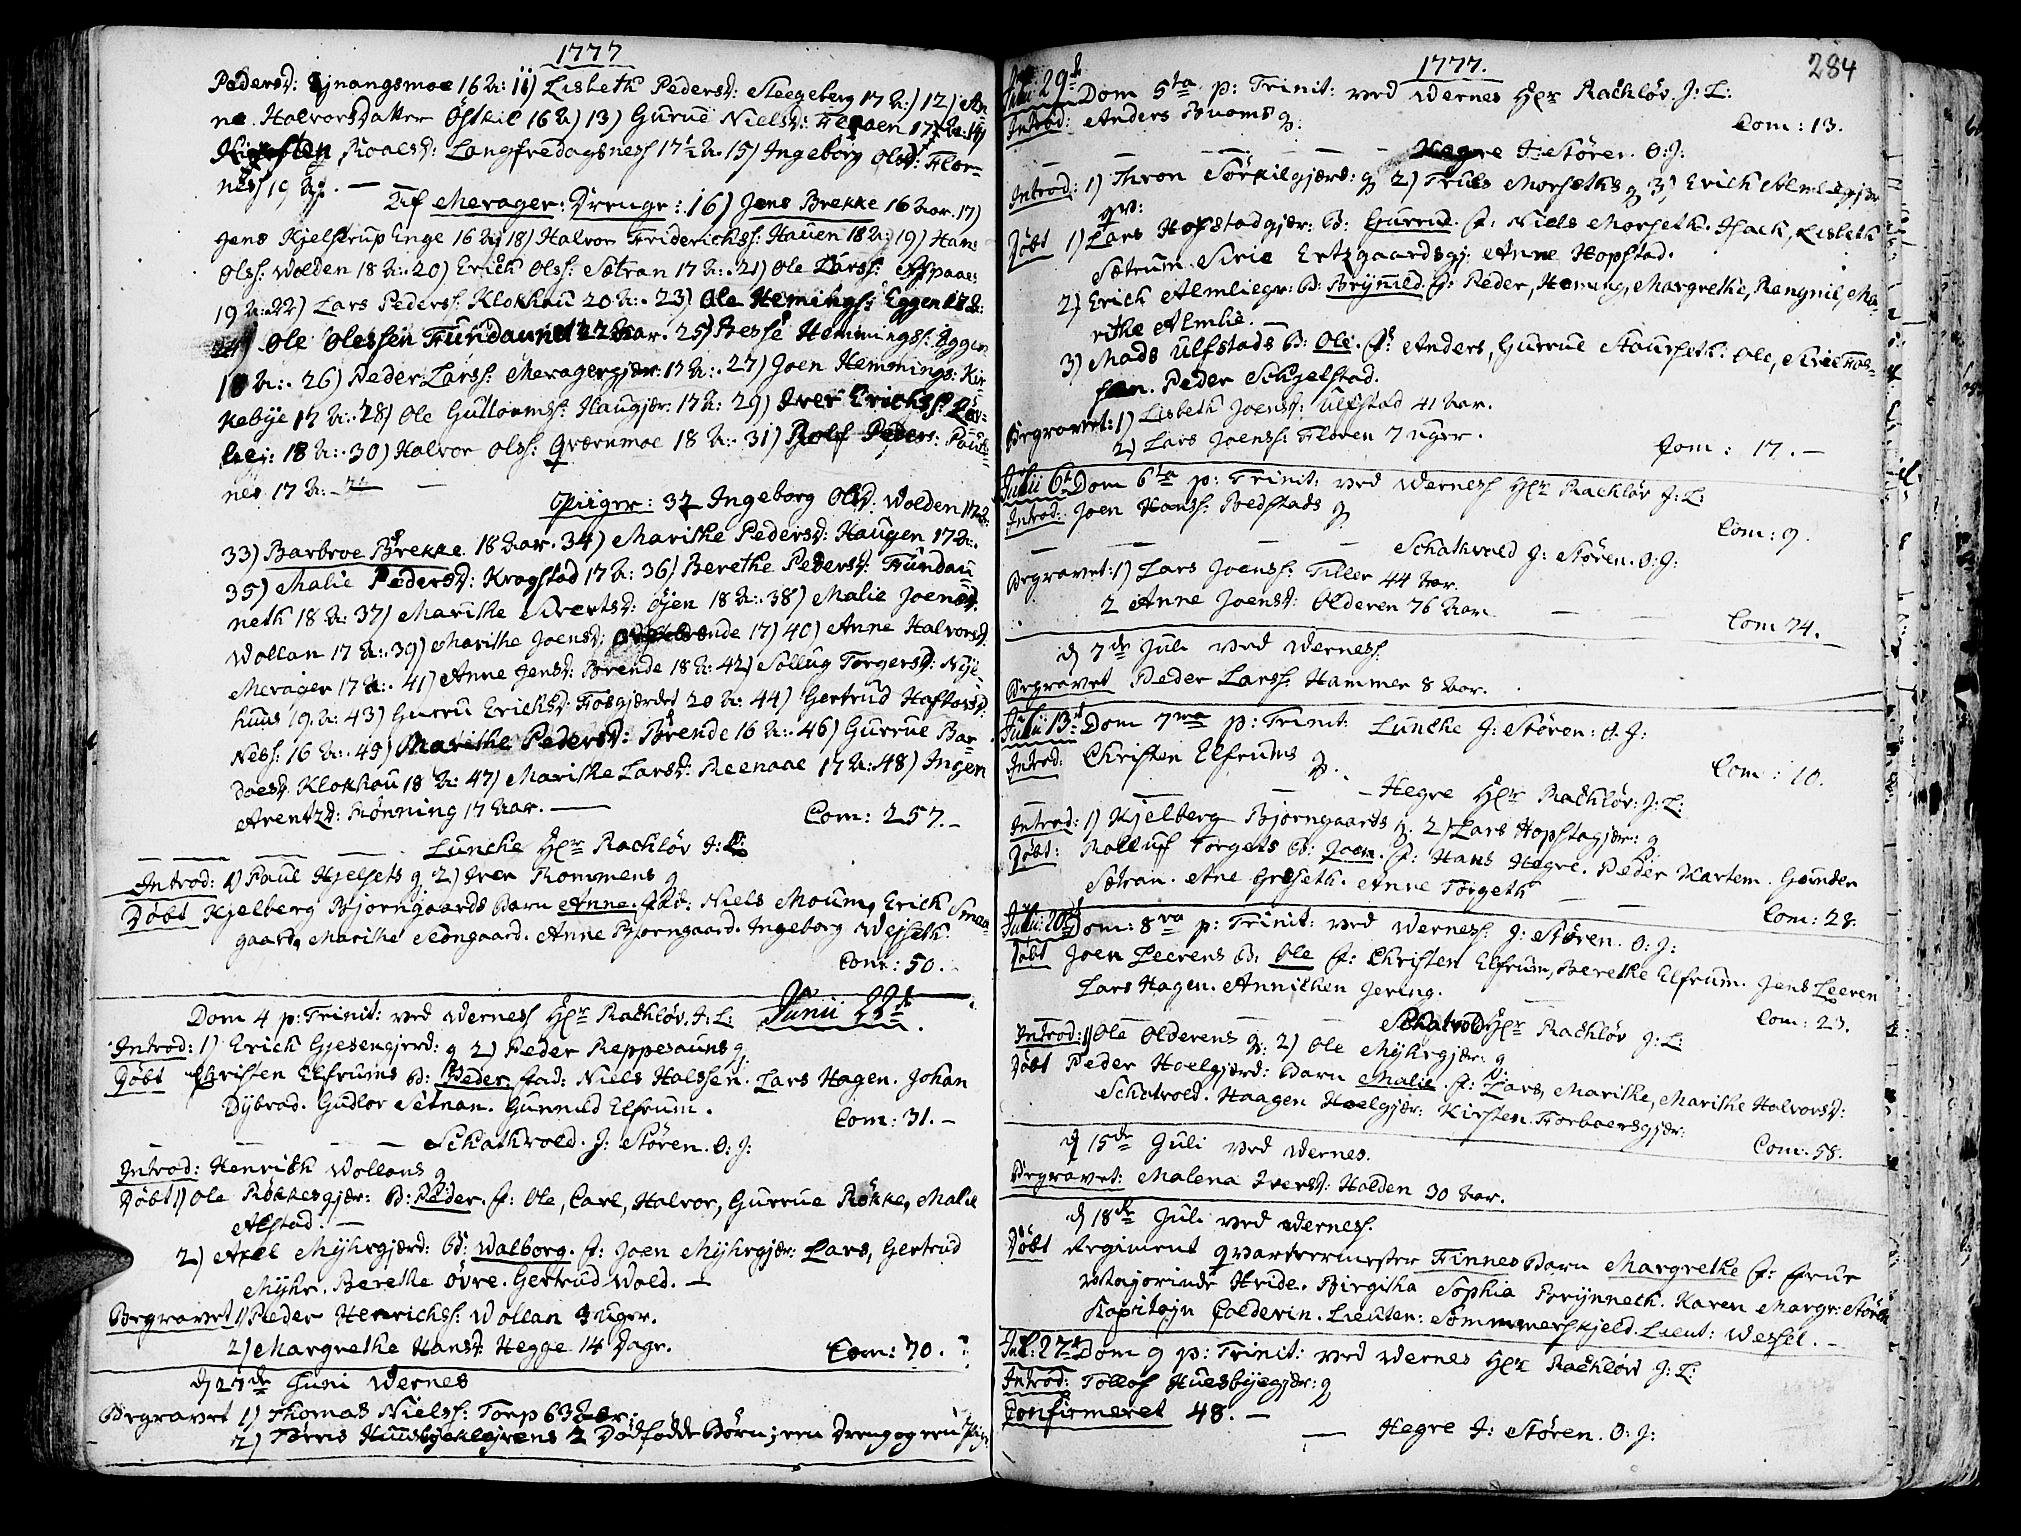 1777
Pedersd: Gjnangsmoe 16 A: 11) Lisbeth Pedersd: Steegeberg 17 A:) 12) An-
ne Halvorsdatter Østkil 16 A) 13) Guruë Nielsd: Floaen 17 A: 14)
Kirsten Roalsd: Langfredagsness 17½ A. 15) Ingeborg Olsd: Flor-
ness 19 A. —
Af Merager: Drenge: 16) Jens Brekke 16 Aar. 17)
Jens Kjelstrup Enge 16 A: 18) Halvor Friderichss: Hauen 18 A: 19) Hans
Olss: Wolden 18 A:. 20) Erich Olss: Sætran 17 A:. 21) Ole Larss:
19 A: 22) Lars Pederss: Klokhau 20 A:. 23) Ole Hemings: Eggen 17 A:
24) Ole Olessen Fundaunet 22 Aar. 25) Hemmings: Eggen
18 A:. 26) Peder Larss: Meragergjær: 17 A:. 27) Joen Hemmings: Kir-
kebye 17 A: 28) Ole Gullormss: Haugjær: 17 A: 29) Iver Erichss:
18 A:. 30) Halvor Olss: Qværnmoe 18 A:. 31) Rolf Peders:
nes 17 A: —
Piiger: 32 Ingeborg Olsd: Wolden 17 A:
33) Barbroe Brekke 18 Aar. 34) Marithe Pedersd: Haugen 17 A:.
35) Malie Pedersd: Kragstad 17 A: 36) Berethe Pedersd: Fundau-
neth 18 A: 37) Marithe Sivertsd: Øjen 18 A:. 38) Malie Joensd:
Wollan 17 A:. 39) Marithe Joensd: 17) 40) Anne Halvorsd:
Merager 17 A:. 41) Anne Jensd: Brende 18 A: 42) Sollug Torgersd: Nye-
huus 19. A: 43) Gurru Erichsd: Fosgjærdet 20 A: 44) Gertrud Haftorsd:
Ness: 16 A:. 45) Marithe Pedersd: Brende 16 A:. 46) Gurrue Bar-
doesd. Klokhau 18 A: 47) Marithe Larsd: Reenaae 17 A: 48) Ingen
Arentzd: Rønning 17 Aar. — Com: 257. —
Luncke Hr Rachløv J: L:
Introd: 1) Paul Hjelsets q 2) Iver Rommens q
Døbt Kjelberg Bjørngaards Barn Anne. fad: Niels Moum, Erich Smaa-
gaard, Marithe Stongaard. Anne Bjørngaard. Ingeborg Wejseth.
Com: 50. —
Dom 4 p: Trinit: ved Werness Hr Rachløv. J: L: Junii 22d
Introd: 1) Erich Gjesengjerd: q 2) Peder Reppesauns q
Døbt Christen Elfrums B: Peder. fad: Niels Halssen. Lars Hagen. Johan
Dybvad. Gudlor Setnan. Gunnild Elfrum. Com: 31. —
Schathvold. J: Støren. O: J:
Introd: Henrich Wollans q
Døbt 1) Ole Røkkesgjær: B: Peder. f: Ole, Carl, Halvor, Gurrue Røkke, Malie
Alstad. —
2) Axel Myhrgjærd: B: Walborg. f: Joen Myhrgjær: Lars, Gertrud
Myhr. Berethe Øvre. Gertrud Wold. —
Begravet 1) Peder Henrichss: Wollan 4 Uger.
2) Margrethe Hansd: Hegge 14 Dage. Com: 70.
d 27de Juni Wernes
Begravet 1) Thomas Nielss: Torp 63 Aar:
2) 2 Dødfødde Børn; een Dreng og een Pige
1777. 284
Junii 29d Dom 5ta p: Trinit: ved Wernes Hr Rachløv. J: L:
Introd: Anders Buoms q. Com: 13.
Hegre J: Støren. O: J:
Introd: 1) Thron Sørkilgjærd: q 2) Truls Morseths q 3) Erich Almliegjær
qv:
Døbt 1) Lars Hofstadgjær: B: Gurrud. f: Niels Morseth. Isack, Lisbeth
Sætrum. Siric Ertzgaardsgj: Anne Hopstad.
2) Erich Almliegr: B: Brynild. f: Peder, Heming, Margrethe, Rangnil, Ma-
rithe Almlie. —
3) Mads Ulfstads B: Ole. f: Anders, Gurrue Ole, Sirie
Peder Schjelstad.
Begravet: 1) Lisbeth Joenss: Ulfstad 41 Aar.
2) Lars Joenss: Floren 7 uger. Com: 17. —
Julii 6t Dom 6ta p: Trinit: ved Werness Hr Rachløv J: L:
Introd: Joen Hanss: Bedstads q Com: 9.
Schathvold J: Støren. O: J:
Begravet: 1) Lars Joenss: Tiller 44 Aar.
2 Anne Joensd: Olderen 76 Aar. Com 74.
d 7de Juli ved Werness.
Begravet Peder Larss: Hammer 8 Aar.
Julii 13d Dom 7ma p: Trinit: Luncke J: Støren: O: J:
Introd: Christen Elfrums q. Com: 10.
Hegre Hr Rachløv: J: L:
Introd: 1) Kjelberg Bjørngaards q. 2) Lars Hopstagjær: q
Døbt: Rolluf Torgets B: Joen. f: Hans Hegre. Peder Kartem. Gunder
Sætran. Ane Græseth. Anne Torgeth Com: 28.
Julii: 20d Dom: 8va p: Trinit: ved Werness. J: Støren. O: J:
Døbt Joen Leerens B: Ole f: Christen Elfrum, Berethe Elfrum. Jens Leeren
Lars Hagen. Annichen Jering. Com: 23.
Schatvold Hr Rachløv J: L:
Introd: 1) Ole Olderens q: 2) Ole Myhrgjær: q
Døbt Peder Hoelgjærd: Barn Malie. f: Lars, Marithe, Marithe Halvorsd:
Schatvold. Haagen Hoelgjær: Kirsten. Forboersgjær: Com: 58.
d 15de Juli ved Wernes.
Begravet: Malena Iversd: Halden 30 Aar.
d 18de Juli ved Werness.
Døbt Regiment qvarteermester Finnes Barn Margrethe f: frue
Majorinde Heide. Birgitha Sophia Brynneth. Karen Margr: Støren
Kapitejn Colderin. Lieuten: Sommerschjeld. Lieut: Wessel. —
Jul: 27d Dom 9 p: Trinit: ved Wernes Hr Rachløv J: L:
Introd: Tollof Huusbyegjær: q
Confirmeret 48. —
Hegre J: Støren. O: J: